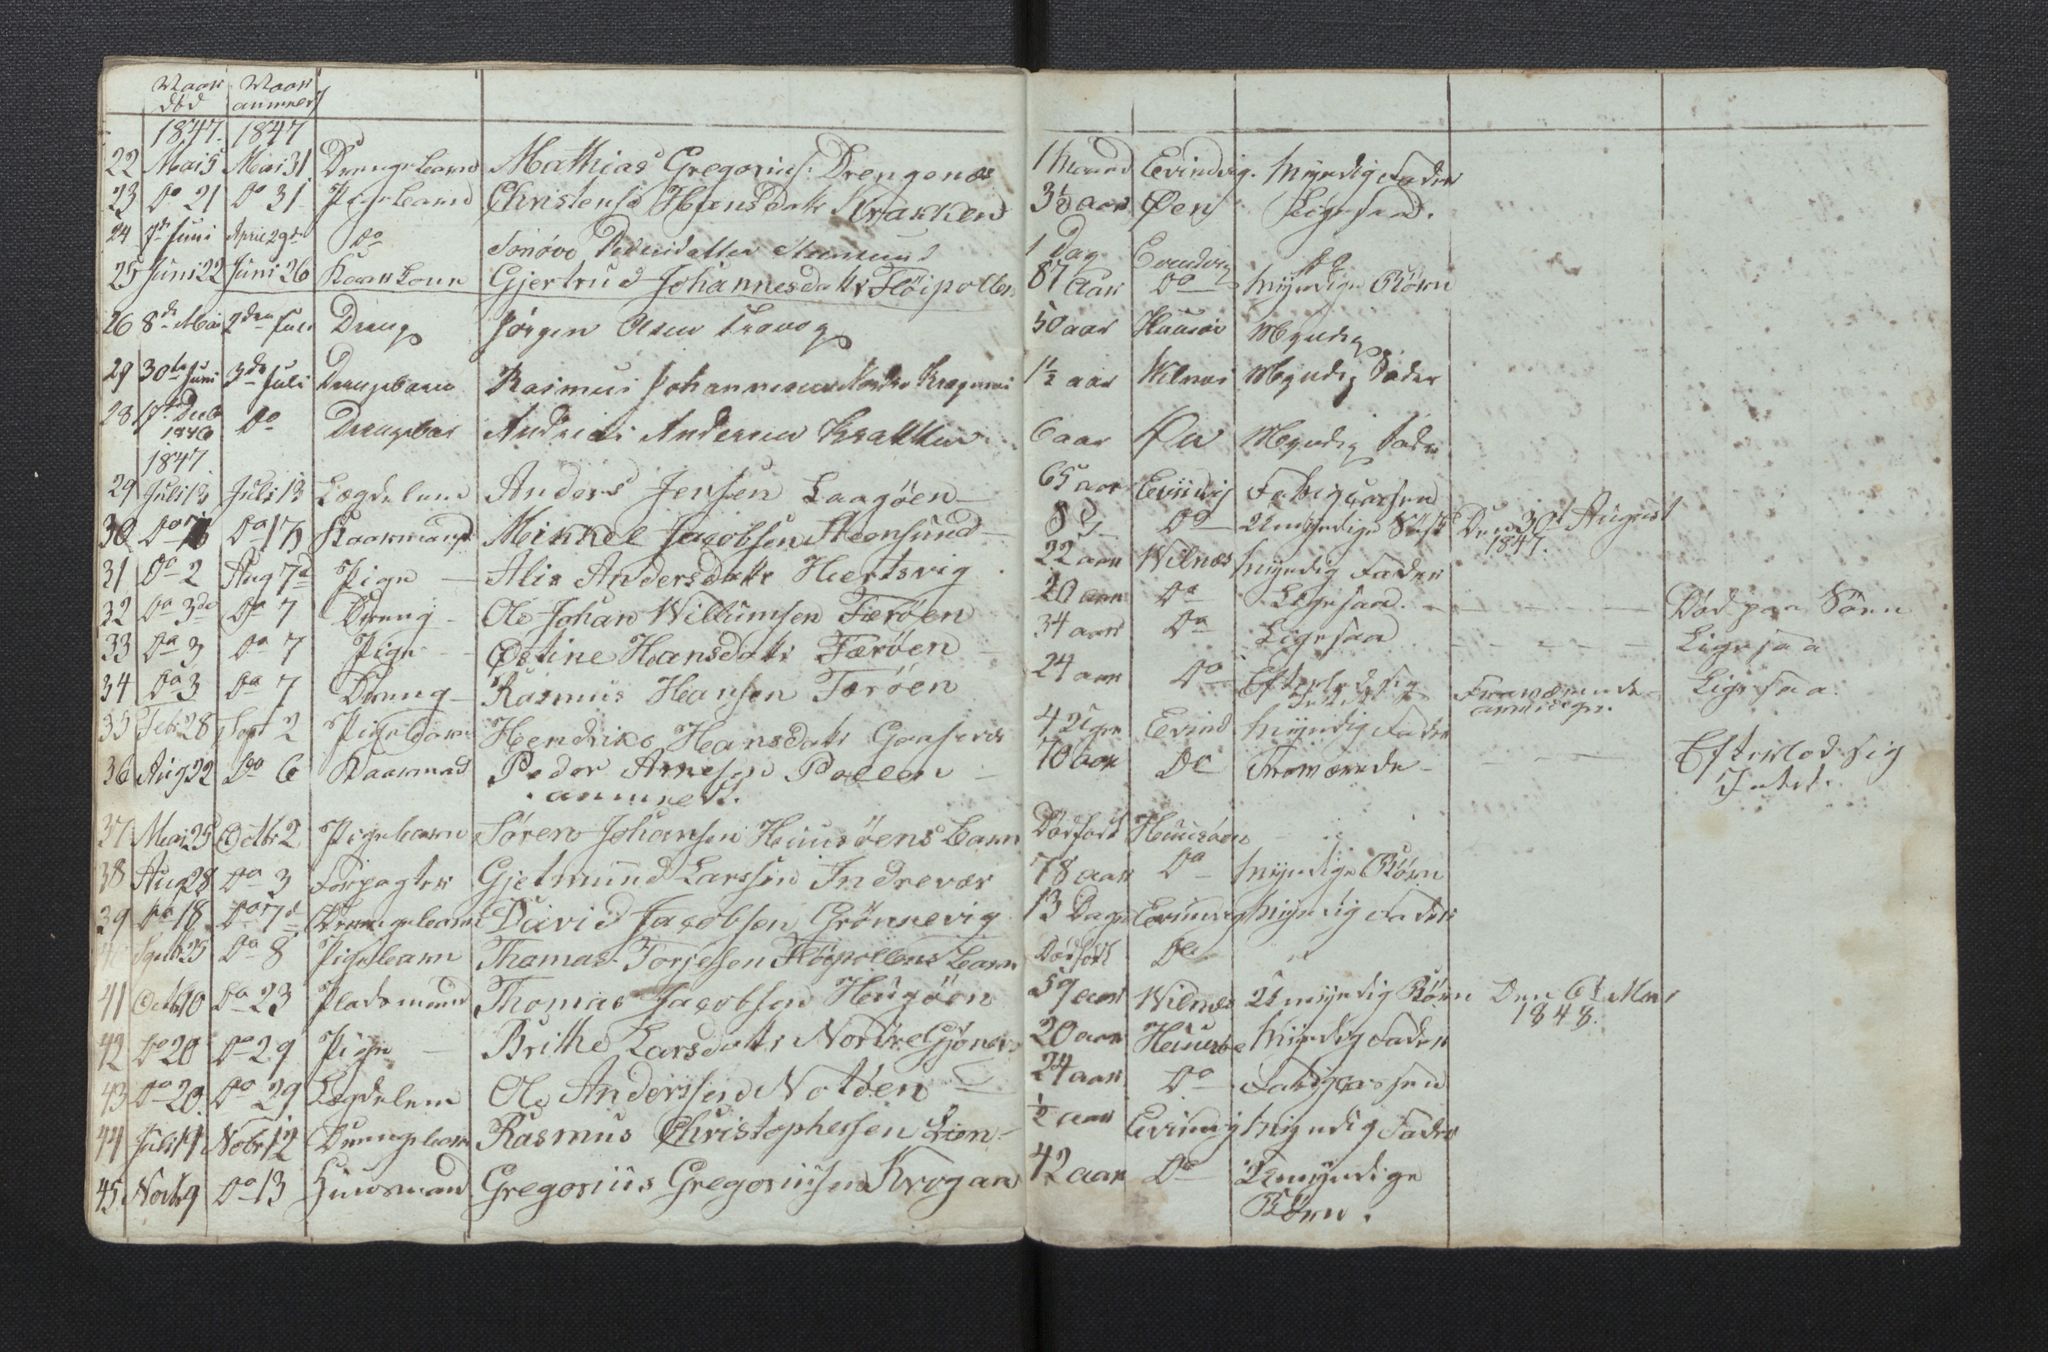 Naar død Naar anmeert
1847. 1847
22 Mai 5 Mai 31. Drengebarn Mathias Gregorius. Drengenæs 1 Maaned Evindvig. Myndig Fader
23 Do 21 Do 31 Pigebarn Christense Hansdatr Krakken 3½ aar Øen Ligesaa.
24 7de Juni April 29de Do Sønøve Pedersdatter Steensund 1 Dag Evindvig do
25 Juni 22 Juni 26 Kaarkone Gjertrud Johannesdatr Fløipollen 87 aar Do Myndige Børn
26 8de Mai 2den Juli Dreng Jørgen Olsen 50 aar Huusøe Myndig
29 30te Juni 3de Juli Drengebarn Rasmus Johannesen Nordre 1½ aar Wilnæs Myndig Fader
28 17de Decb 1846 Do Drengebar Andreas Andersen Krakken 6 aar Øen Myndig Fader
1847.
29 Juli 13 Juli 13 Lægdelem Anders Jensen Laagøen 65 aar Evindvig Fatigcassen
30 Do Do 17 Kaarmand Mikkel Jacobsen Steensund Do Umyndige Den 30te August 1847.
31 Do 2 Aug 7d Pige Alis Andersdatr Hertsvig 22 aar Wilnæs Myndig Fader
32 Do 3de Do 7 Dreng Ole Johan Willumsen Færøen 20 aar Do Ligesaa. Død paa Søen
33 Do 3 Do 7 Pige Østine Hansdatr Færøen 34 aar Do Ligesaa Ligesaa
34 Do 3 Do 7 Dreng Rasmus Hansen Færøen 24 aar Do Efterlod sig Fraværende Ligesaa
35 Feb 28 Sept 2 Pigebarn Hendrike Hansdatr 4 Uger Evind Myndig Fader
36 Aug 22 Do 6 Kaarmad Peder Arnesen Pollen 70 aar Do Fraværende Efterlod sig Intet.
anmeert.
37 Mai 25 Octbr 2 Pigebarn Søren Johansen Huusøens barn Dødfødt Huusøen
38 Aug 28 Do 3 Forpagter Gjelmund Larssen Indrevær 78 aar Do Myndige Børn
39 Do 18 Do 7d Drengebarn David Jacobsen Grønnevig 13 Dage Evindvig Myndig Fader
Septb 25 Do 8 Pigebarn Thomas Torjesen Fløipollens barn Dødfødt Do "
41 Octb 10 Do 23 Pladsmand Thomas Jacobsen Haugøen 59 aar Wilnæs Umyndig Børn Den 6t Mars 1848.
42 Do 20 Do 29 Pige Brithe Larsdatr Nordre Gjønes 20 aar Huusøe Myndig Fader
43 Do 20. Do 29 Lægdelem Ole Anderssen Notøen 24 aar Do Fatigcassen
44 Juli 11 Nobr 12 Drengebarn Rasmus Christophersen Lien ½ aar Evindvig Myndig Fader
45. Novb 9 Do 13 Huusmand Gregorius Gregoriussen Krogan 42 aar Do Umyndige
Børn.